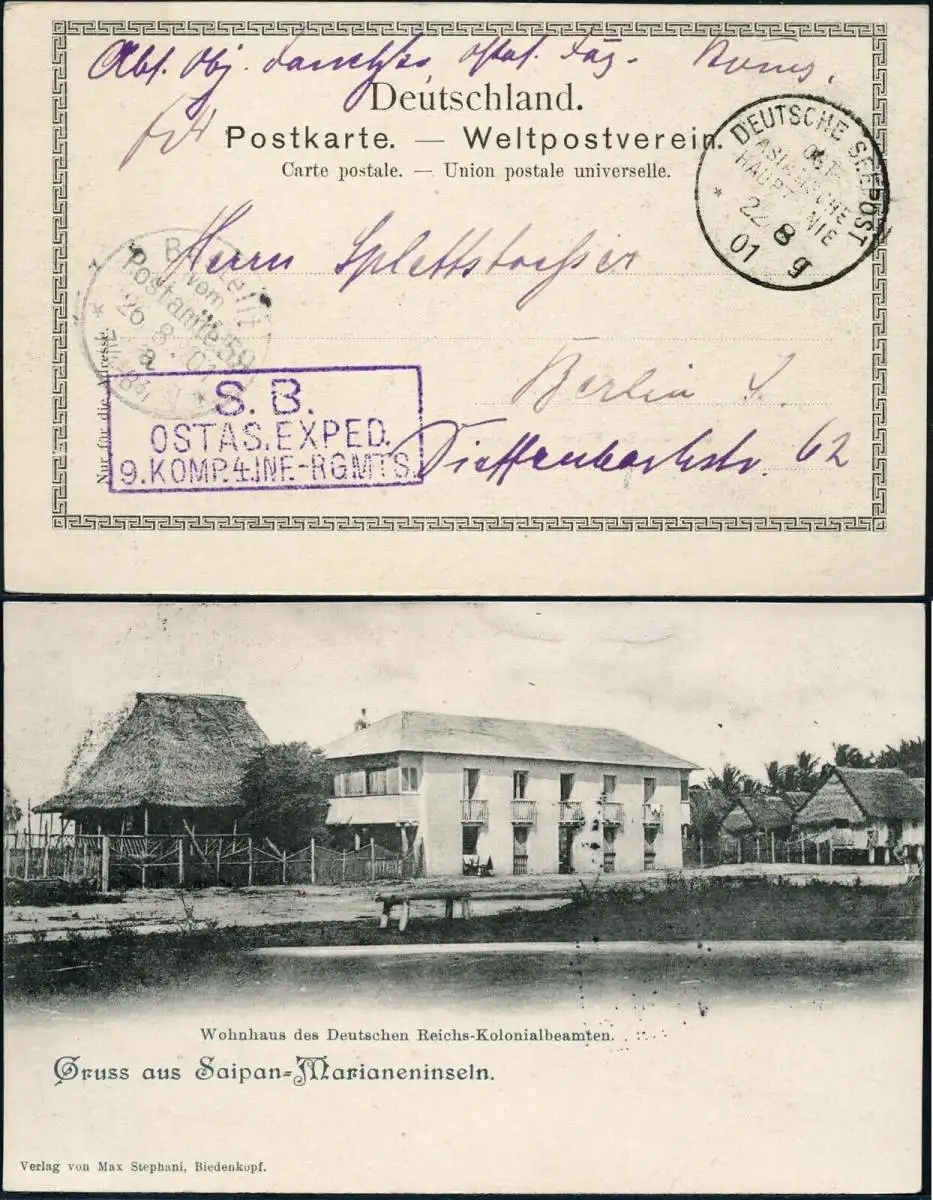 Abs. Obj.
Deutschland.
Postkarte. — Weltpostverein.
Carte postale. — Union postale universelle.
DEUTSCHE SEEPOST
OST-
ASIATISCHE
HAUPTLINIE
22 8
01 g
Herrn Splettstoesser
Bestellt
vom
Postamte 59
26.8.01
Berlin S.
Dieffenbachstr. 62
Nur für die Adresse.
S. B.
OSTAS. EXPED.
9. KOMP. 4. INF.-RGMTS.
Wohnhaus des Deutschen Reichs-Kolonialbeamten.
Gruss aus Saipan-Marianeninseln.
Verlag von Max Stephani, Biedenkopf.